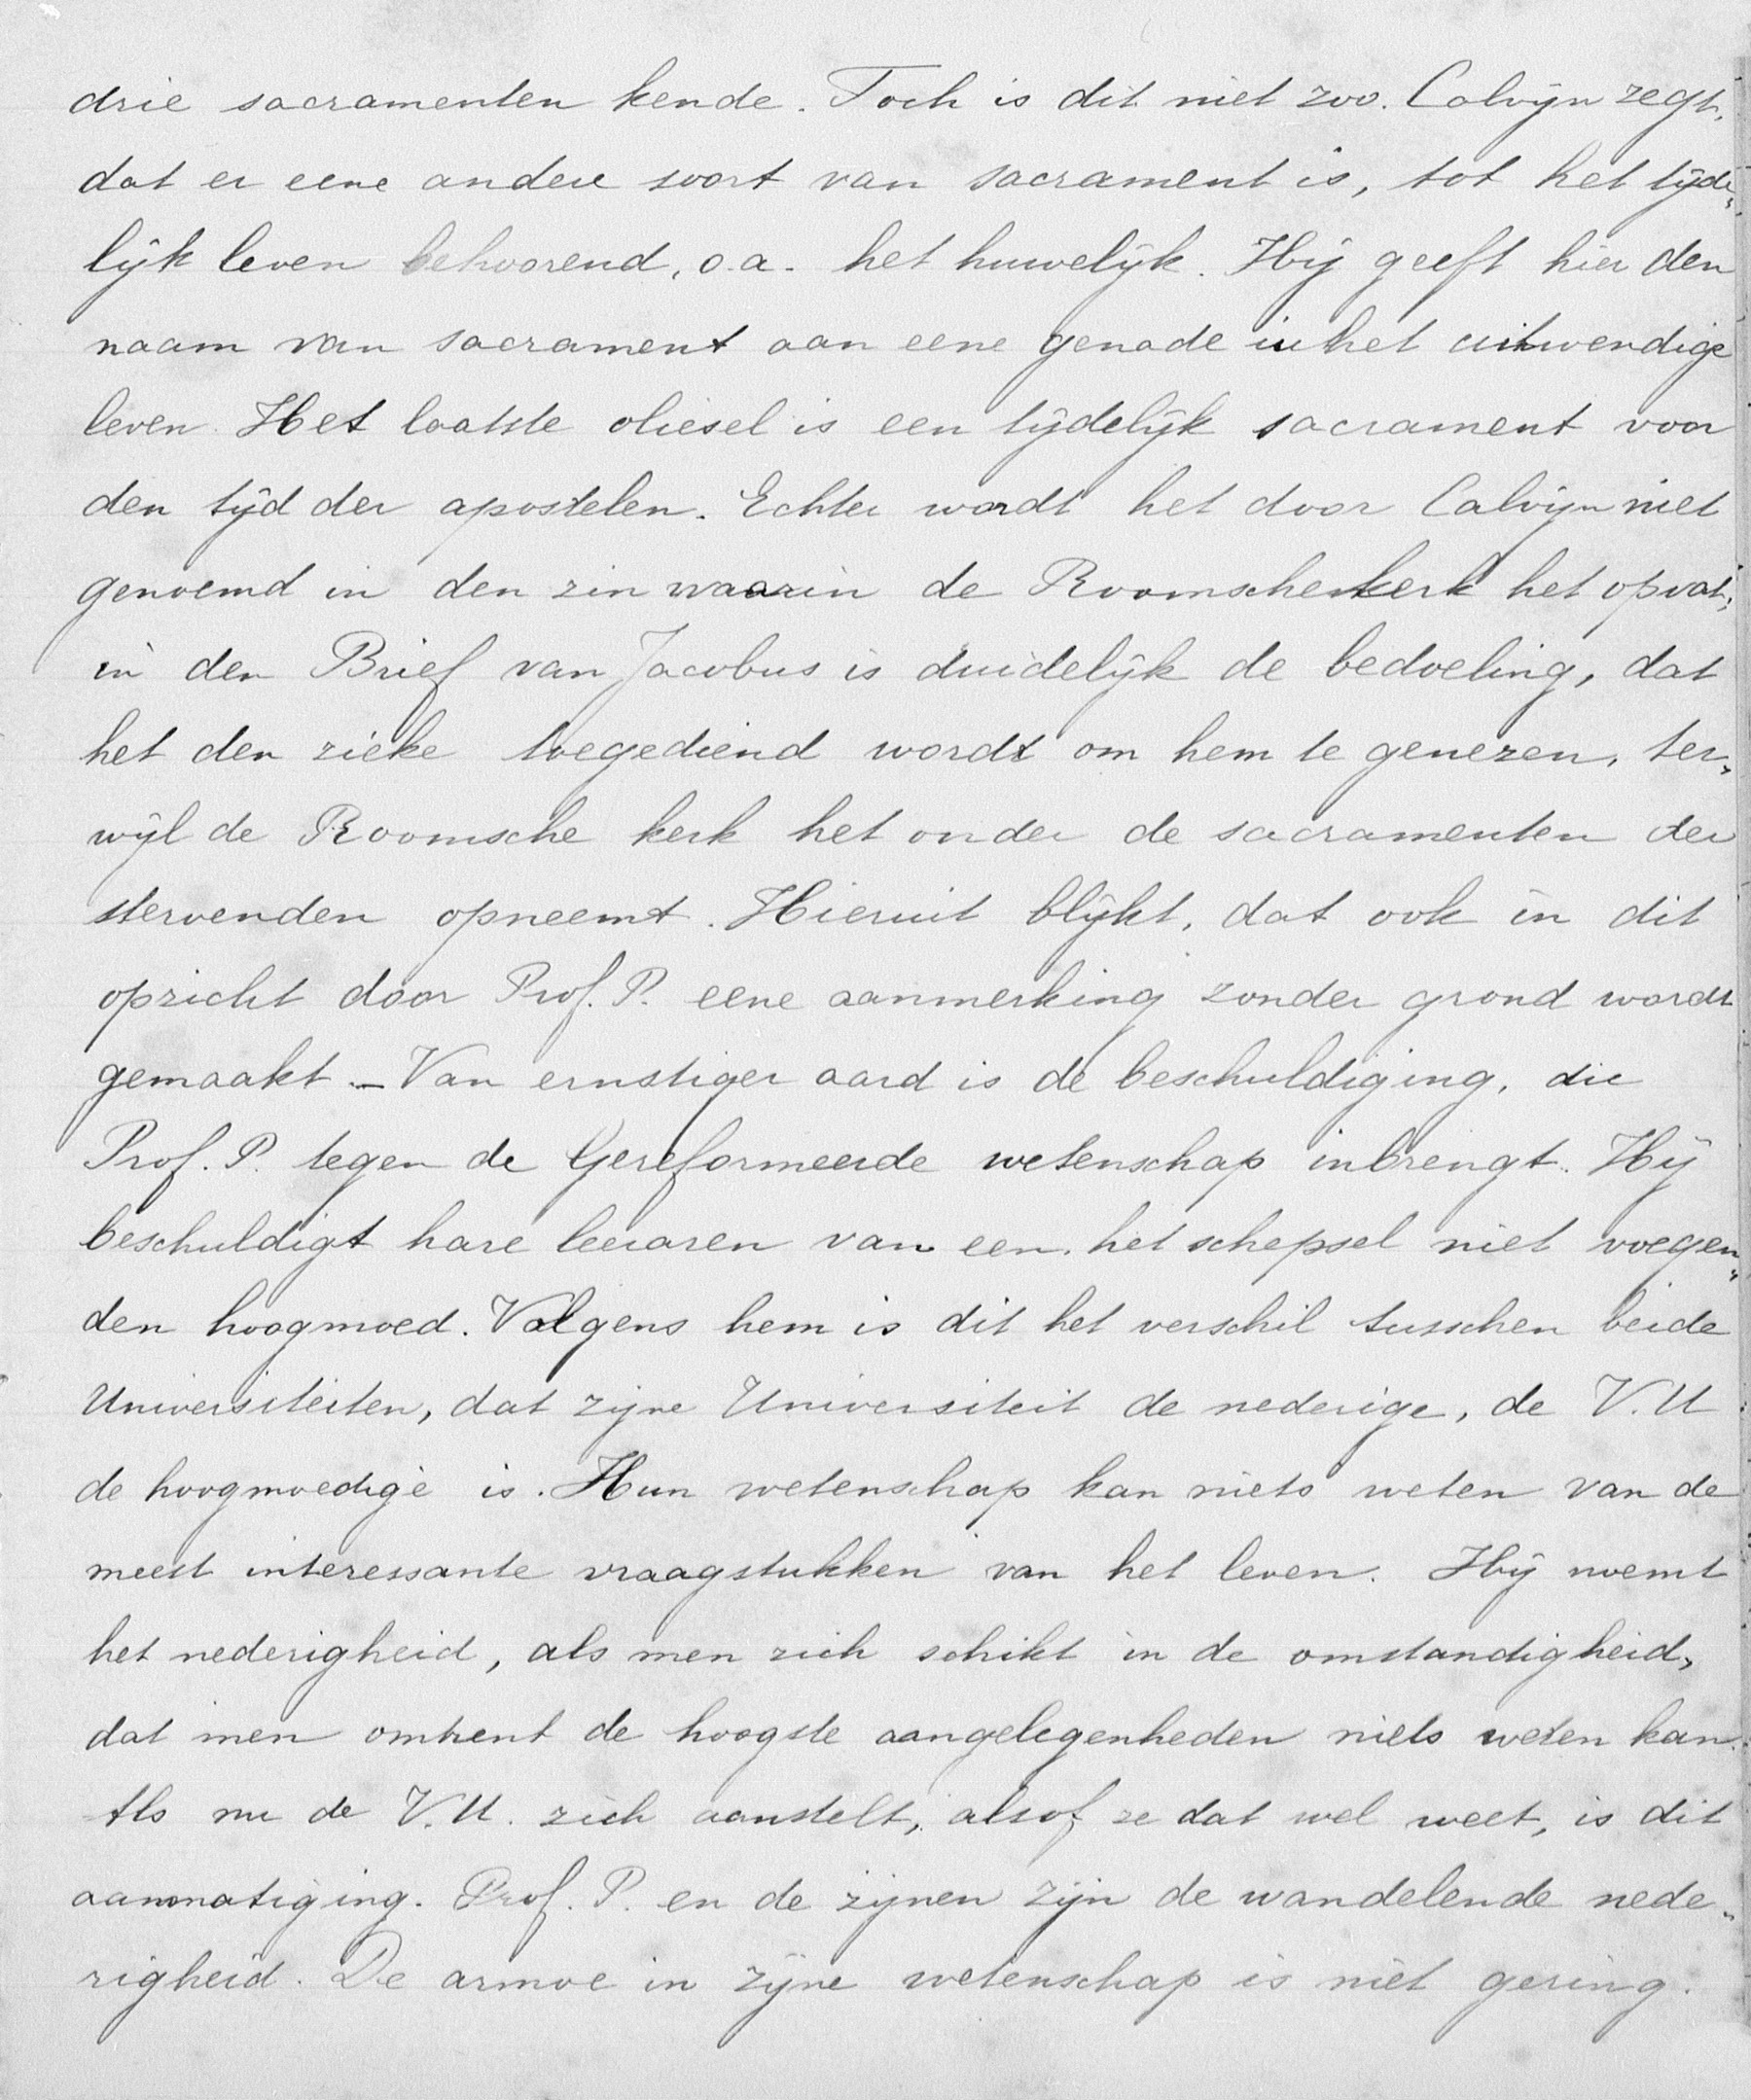 drie sacramenten kende. Toch is dit niet zoo. Calvijn zegt,
dat er eene andere soort van sacrament is, tot het tijde„
lijk leven behoorend, o.a. het huwelijk. Hij geeft hier den
naam van sacrament aan eene genade in het uitwendige
leven. Het laatste oliesel is een tijdelijk sacrament voor
den tijd der apostelen. Echter wordt het door Calvijn niet
genoemd in den zin waarin de Roomsche kerk het opvat;
in den Brief van Jacobus is duidelijk de bedoeling, dat
het den zieke toegediend wordt om hem te genezen, ter„
wijl de Roomsche kerk het onder de sacramenten der
stervenden opneemt. Hieruit blijkt, dat ook in dit
opzicht door Prof. P. eene aanmerking zonder grond wordt
gemaakt. – Van ernstiger aard is de beschuldiging, die
Prof. P. tegen de Gereformeerde wetenschap inbrengt. Hij
beschuldigt hare leeraren van een het schepsel niet voegen„
den hoogmoed. Volgens hem is dit het verschil tusschen beide
Universiteiten, dat zijne Universiteit de nederige, de V.U
de hoogmoedige is. Hun wetenschap kan niets weten van de
meest interessante vraagstukken van het leven. Hij noemt
het nederigheid, als men zich schikt in de omstandigheid,
dat men omtrent de hoogste aangelegenheden niets weten kan.
Als nu de V.U. zich aanstelt, alsof ze dat wel weet, is dit
aanmatiging. Prof. P. en de zijnen zijn de wandelende nede„
righeid. De armoe in zijne wetenschap is niet gering.